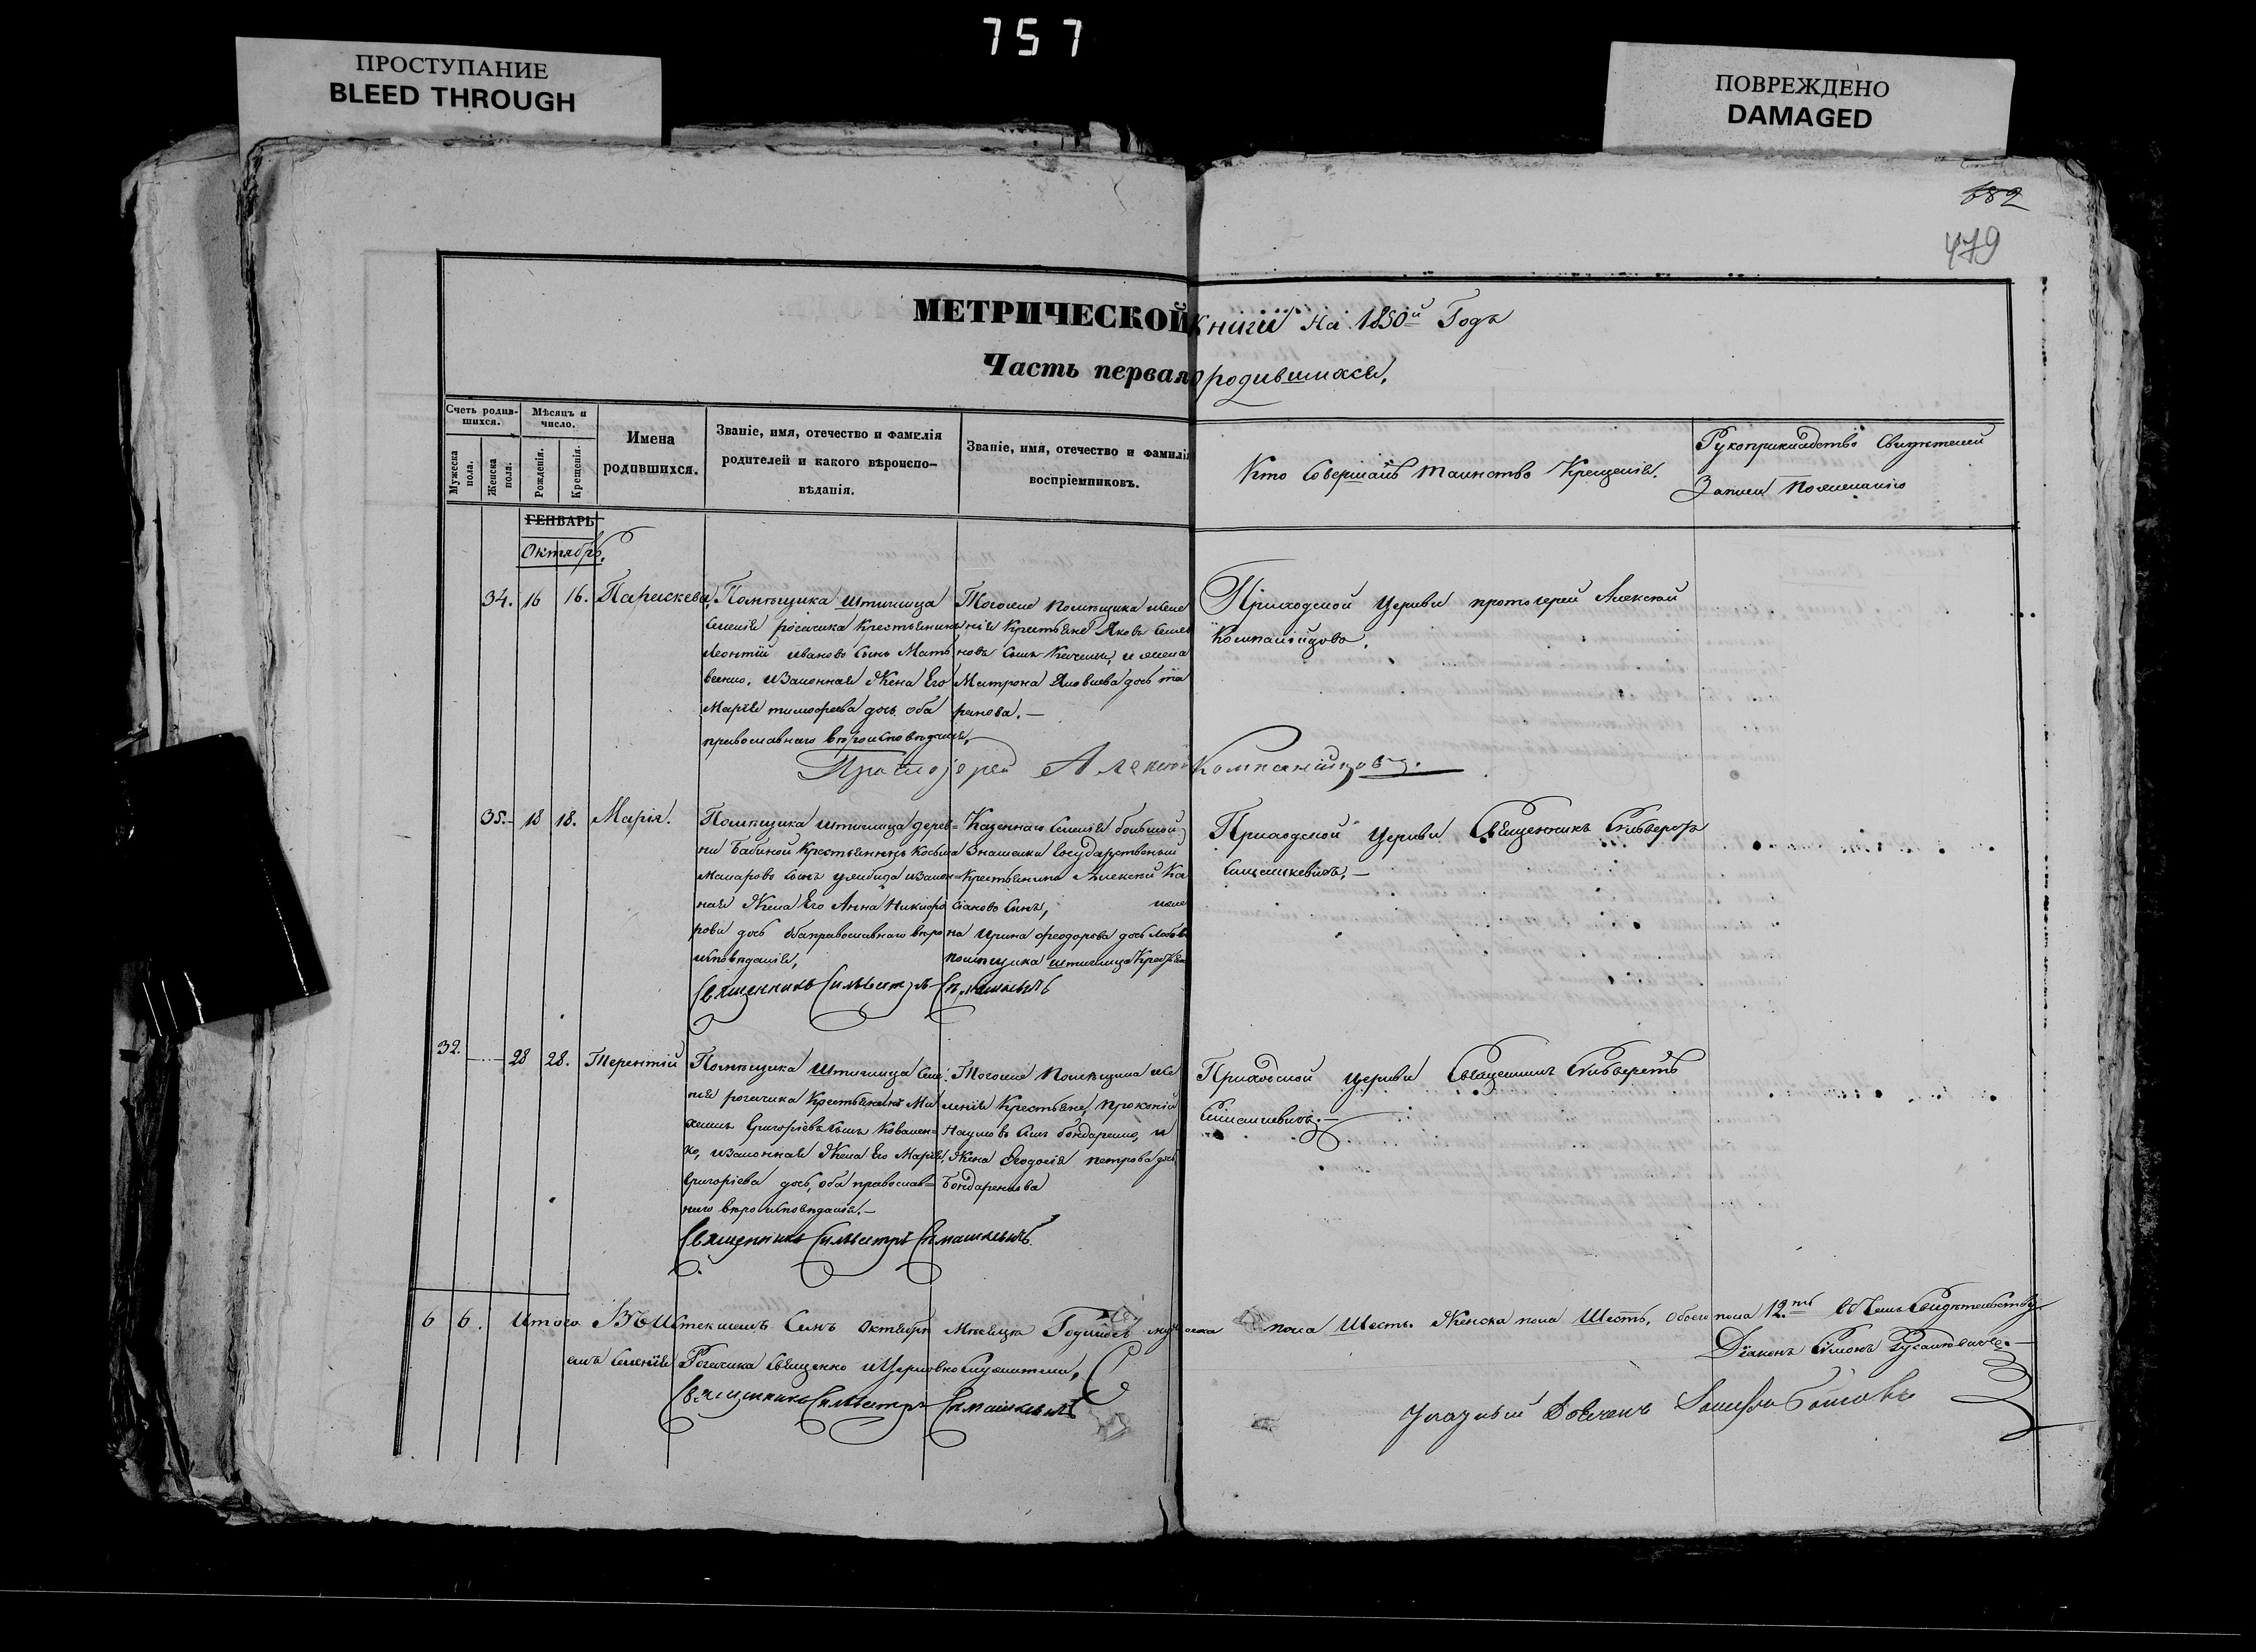 757
ПРОСТУПАНИЕ
BLEED THROUGH
ПОВРЕЖДЕНО
DAMAGED
682
479
МЕТРИЧЕСКОЙ книги на 1850й Годъ
Часть первая о родившихся,
Счетъ родив-
шихся.
Мужеска пола.
Женска пола.
Мѣсяцъ и
число.
Рожденія.
Крещенія.
Имена
родившихся.
Званіе, имя, отечество и фамилія
родителей и какого вѣроиспо-
вѣданія.
Званіе, имя, отечество и фамилія
воспріемниковъ.
Кто Совершалъ таинство Крещенія.
Рукоприкладство Свидѣтелей
Записи по желанію
ГЕНВАРЬ
Октябрь.
34. 16 16. Параскева,
Помѣщика Штиглица
Селенія рогачика Крестьянинъ
Леонтій Ивановъ Сынъ Мат
веенко, изаконная Жена Его
Марія тимофеева дочь оба
православнаго вѣроисповѣданія,
Тогоже помѣщика имѣ
нія Крестьяне Яковъ Семе
новъ Сынъ и жена
Матрона Яковлева дочь та
ранова. —
Приходской Церкви протоіерей Алексій
Компанійцовъ.
Протоіерей Алексій Компанійцовъ.
35. - 18 18. Марія.
Помѣщика Штиглица дерев=
ни Бабиной Крестьянинъ Косьма
Макаровъ Сынъ изакон=
ная Жена Его Анна Никифо
рова дочь оба православнаго вѣро
исповѣданія,
Казеннаго Селенія большой
Знаменки Государственный
Крестьянинъ Алексій Ка
сіановъ Сынъ,
на Ирина феодорова дочь
помѣщика Штиглица
Приходской Церкви Священникъ Сильверстъ
Симашкевичъ. —
Священникъ Сильвестръ Симашкевичъ
32. 28 28. Терентій
Помѣщика Штиглица Селе
нія рогачика Крестьянинъ Ма
ксимъ Григорьевъ Сынъ Ковален=
ко, изаконная Жена Его Марія
Григоріева дочь, оба православ=
наго вѣроисповѣданія. —
Тогоже Помѣщика име
нія Крестьяне, Прокопій
Наумовъ Сынъ бондаренко, и
Жена Феодосія петрова дочь
Бондаренкова
Приходской Церкви Священникъ Сильверстъ
Симашкевичъ. —
Священникъ Сильвестръ Симашкевичъ
6 6. Итого Въ Истекшемъ Семъ Октябрѣ Мѣсяцѣ Родилось мужеска пола Шесть. Женска пола Шесть, обоего пола 12.ть Въ Чемъ Свидѣтельству
емъ Селенія Рогачика Священно и Церковно Служители,
Священникъ Сильвестръ Симашкевичъ
Діаконъ Симонъ